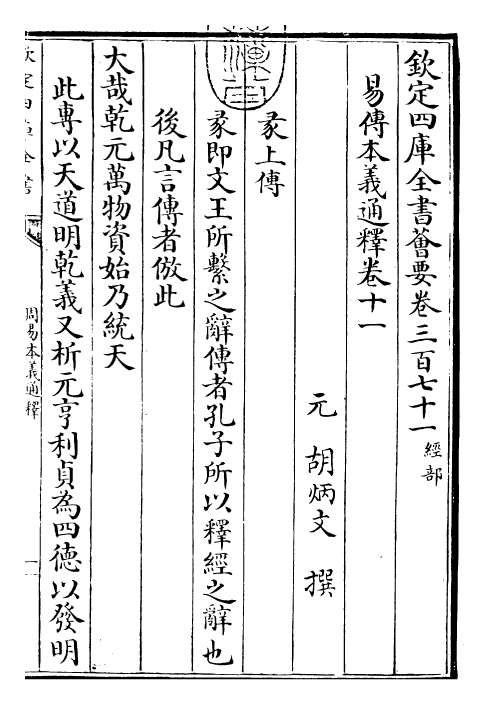 欽定四庫全書薈要卷三百七十一經部
易傳本義通釋卷十一
元胡炳文撰
彖上傳
彖即文王所繫之辭傳者孔子所以釋經之辭也
後凡言傳者倣此
大哉乾元萬物資始乃統天
此專以天道明乾義又析元亨利貞為四德以發明
欽定四庫全書
周易本義通釋
一